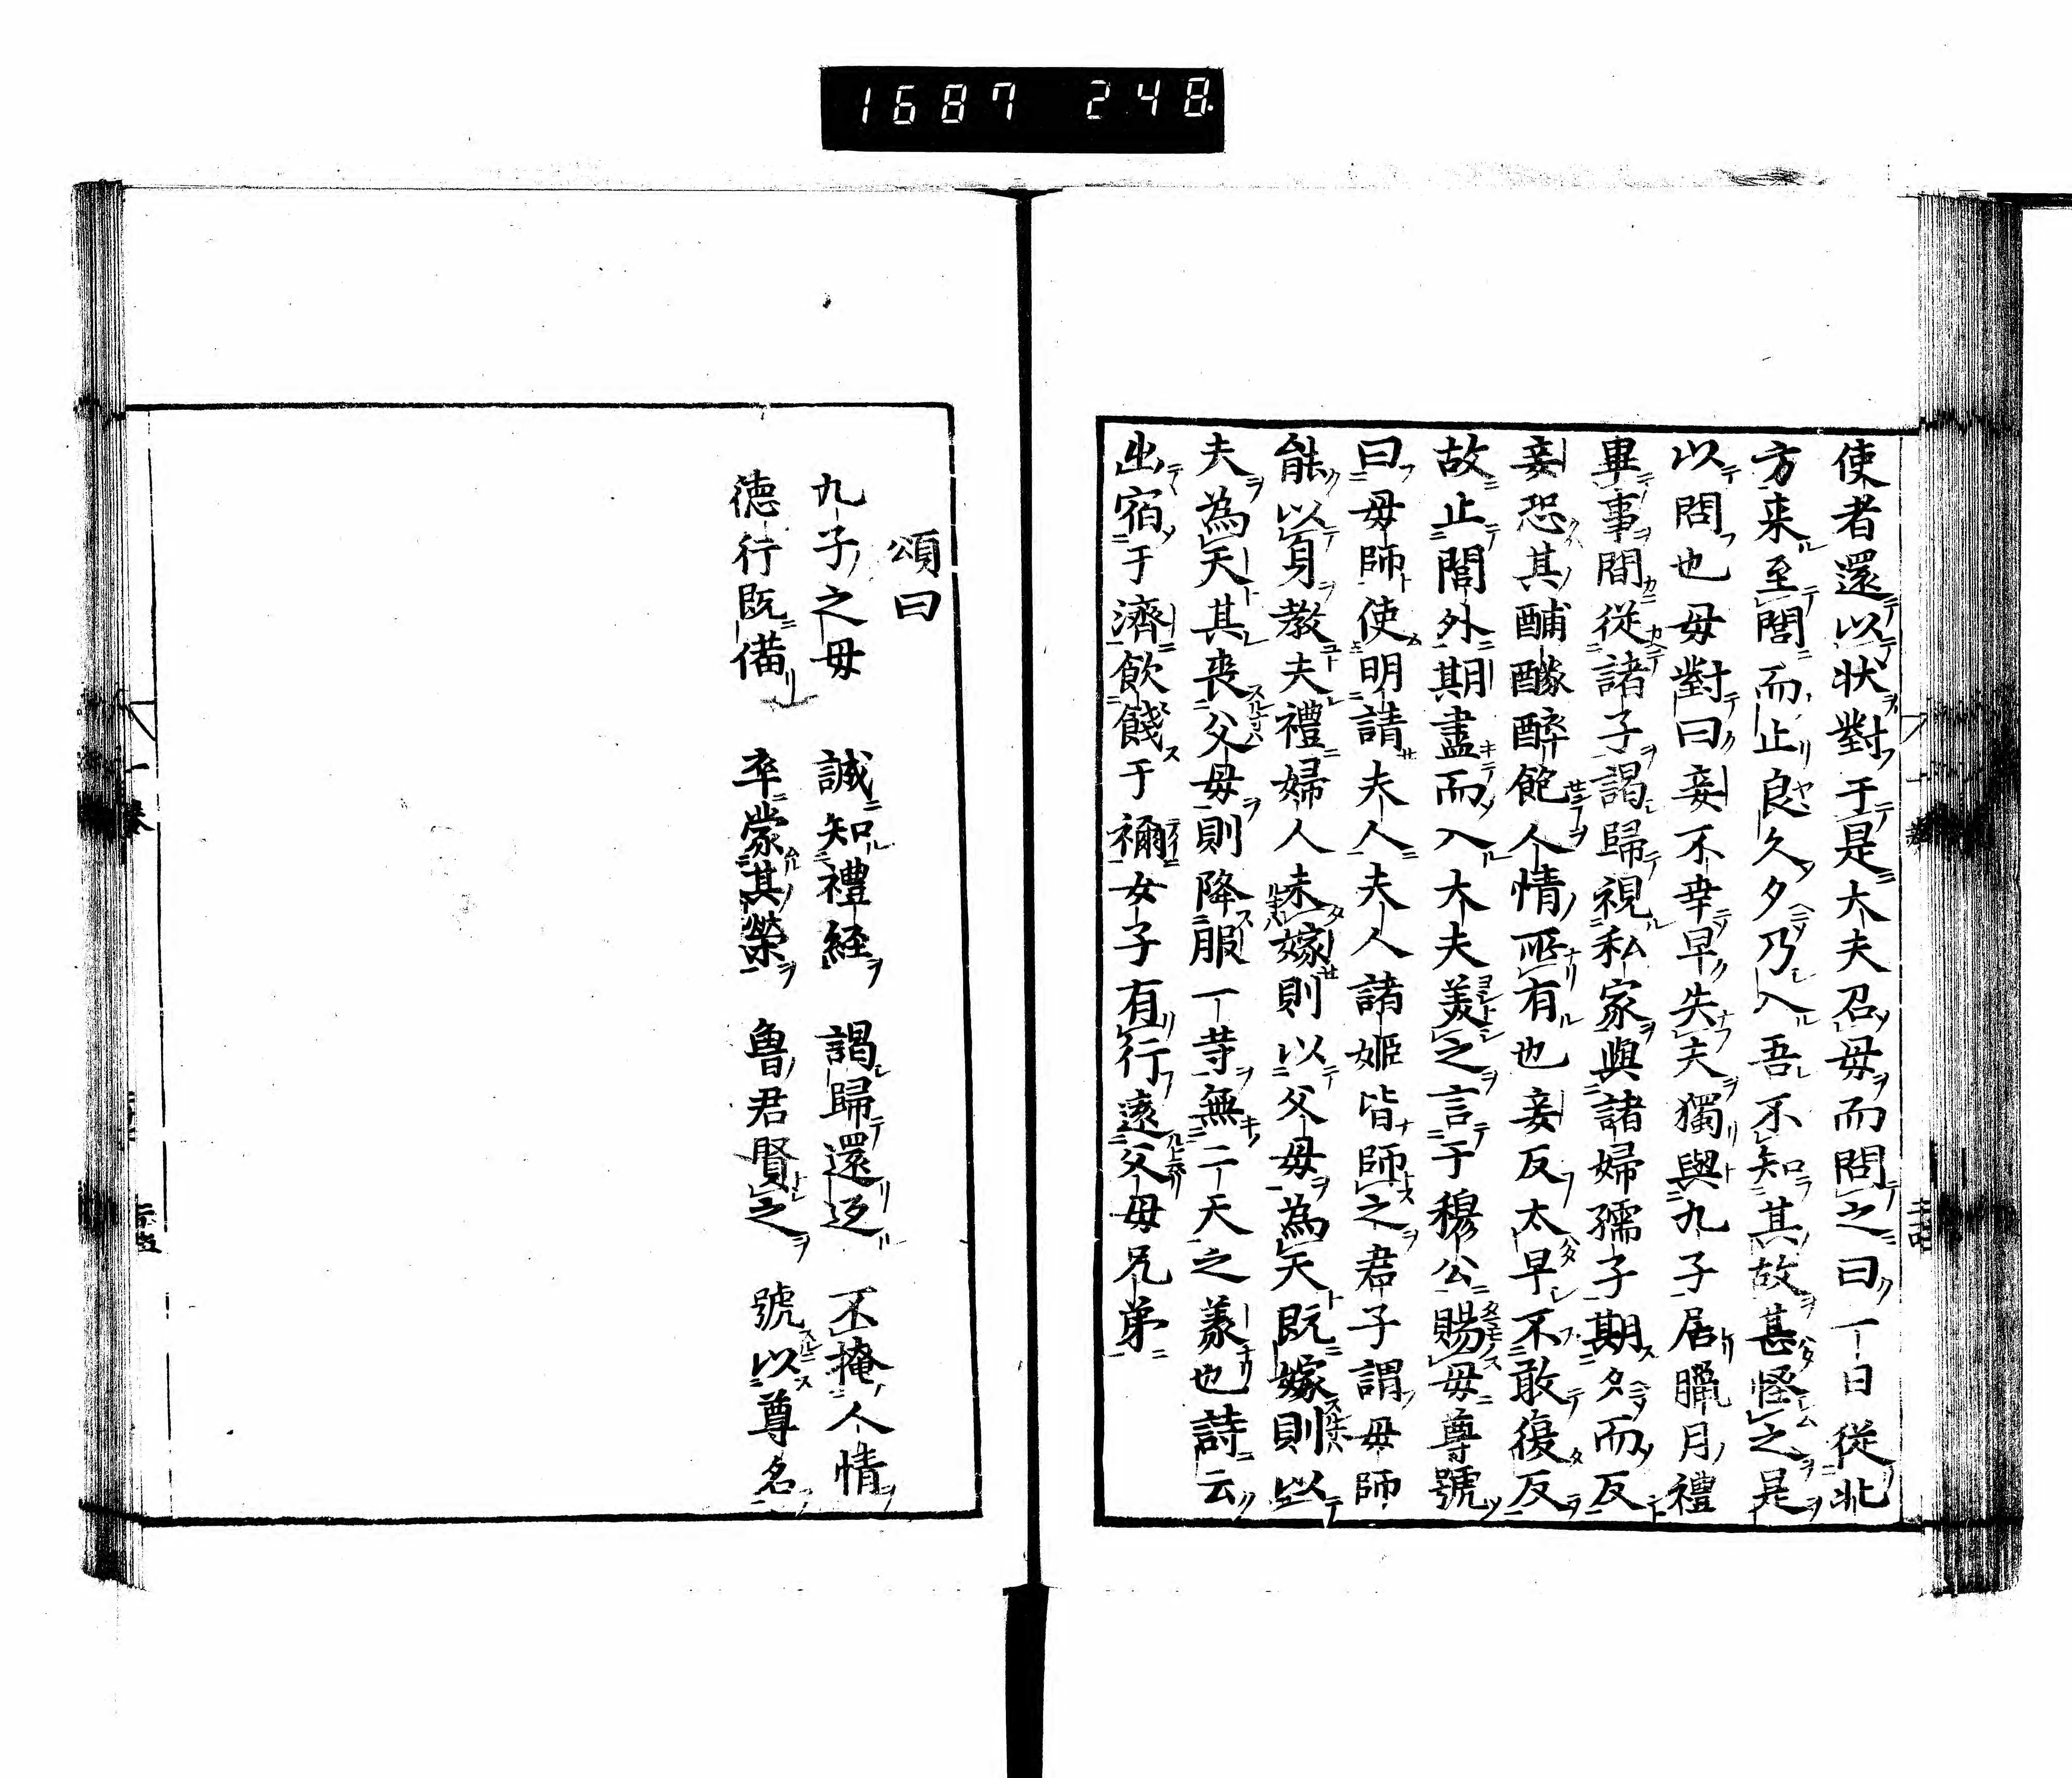 1687 248
使者還以状對于是大夫召母而問之曰一日從北
方来至閭而止良久夕乃入吾不知其故甚怪之是
以問也母對曰妾不幸早失夫獨與九子居臘月禮
畢事間從諸子謁歸視私家與諸婦孺子期夕而反
妾恐其酺醵醉飽人情所有也妾反太早不敢復反
故止閭外期盡而入大夫美之言于穆公賜母尊號
曰母師使明請夫人夫人諸姬皆師之君子謂母師
能以身教夫禮婦人未嫁則以父母為天既嫁則以
夫為天其喪父母則降服一等無二天之義也詩云
出宿于濟飲餞于禰女子有行遠父母兄弟
頌曰
九子之母　誠知禮經　謁歸還迟　不掩人情
德行既備　卒蒙其榮　魯君賢之　號以尊名